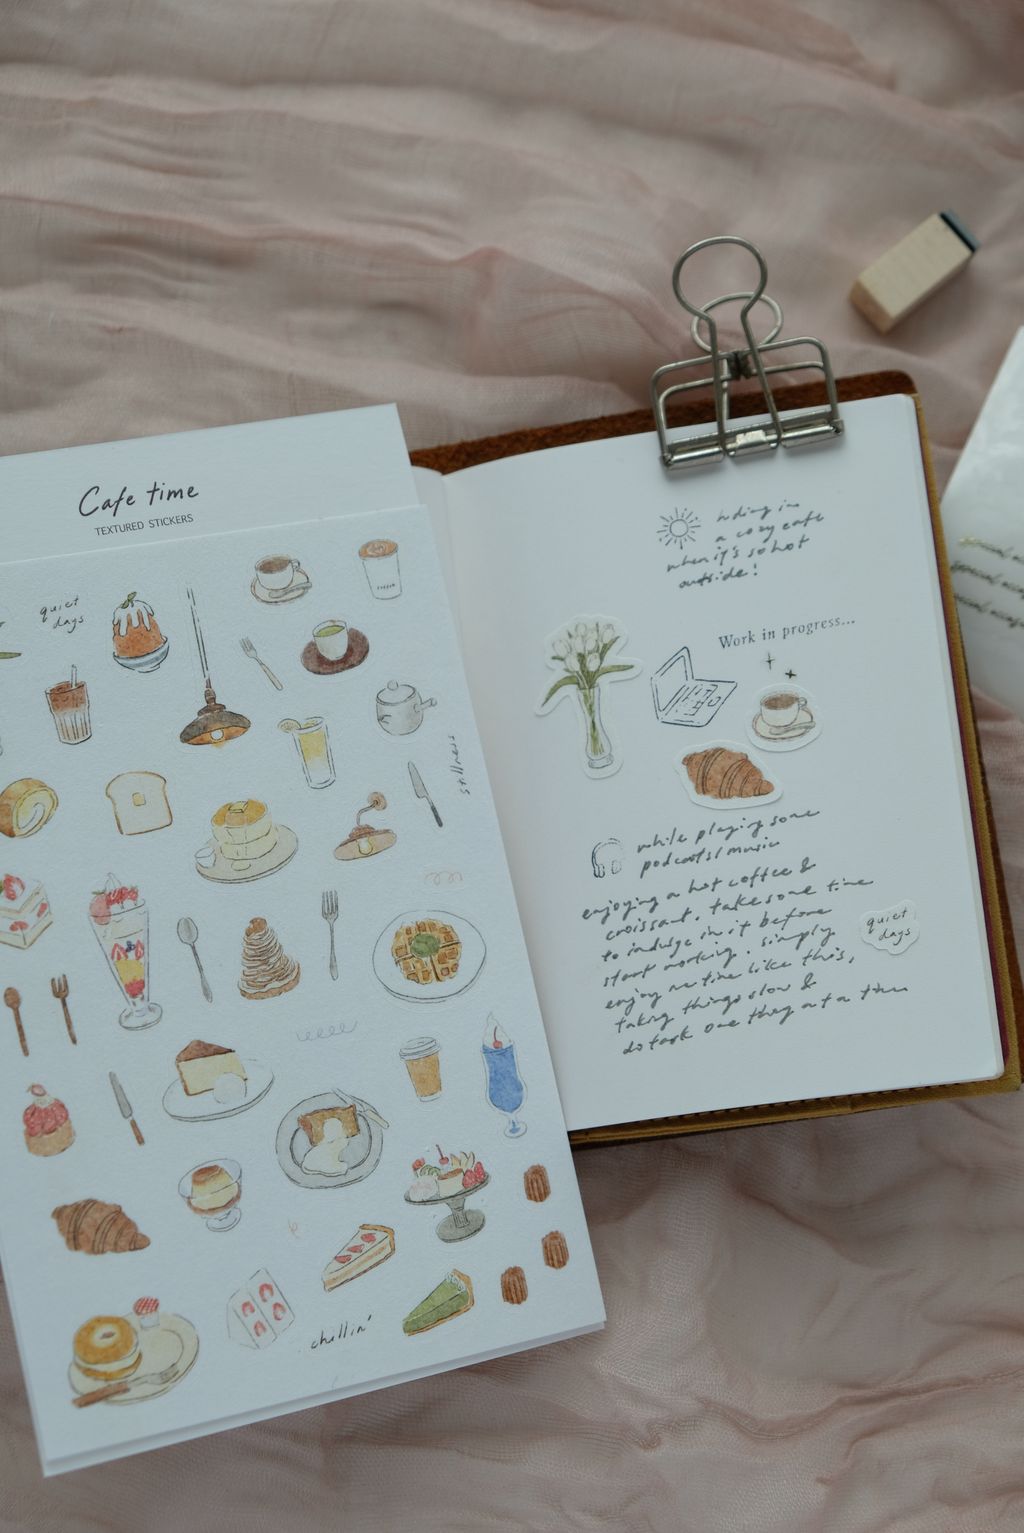 Cafe time
TEXTURED STICKERS
quiet
days
COFFEE
stillness
chillin'
hiding in
a cozy cafe
when it's so hot
outside!
Work in progress...
while playing some
podcasts/music
enjoying a hot coffee &
croissant. take some time
to indulge in it before
start working. simply
enjoy me time like this,
taking things slow &
do task one they at a time
quiet
days
special
special
special